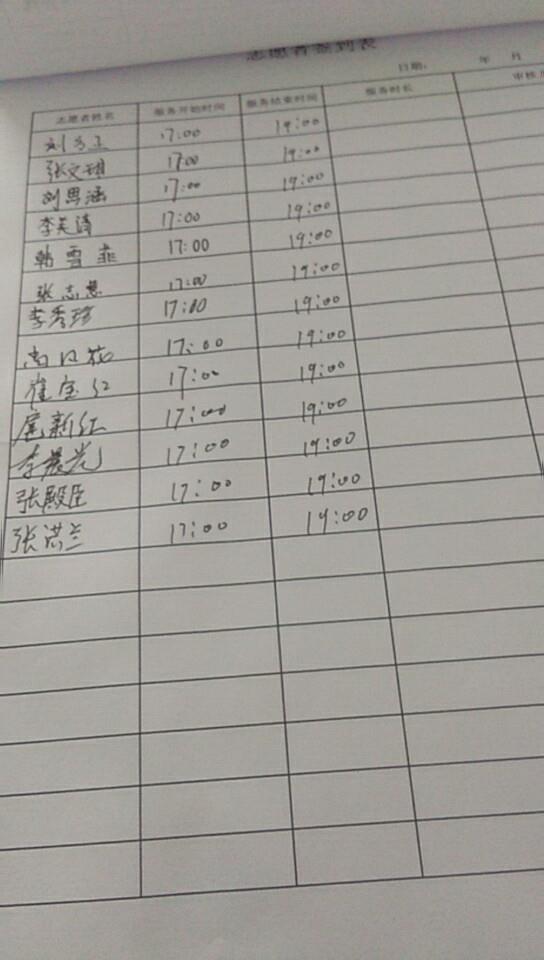 志愿者签到表
日期： 年 月
志愿者姓名 服务开始时间 服务结束时间 服务时长 审核
17:00 19:00
张文翔 17:00 19:00
刘思涵 17:00 19:00
李笑清 17:00 19:00
韩雪菲 17:00 19:00
张志慧 17:00 19:00
李秀珍 17:00 19:00
17:00 19:00
崔宝红 17:00 19:00
扈新红 17:00 19:00
李晨光 17:00 19:00
张殿臣 17:00 19:00
张洪兰 17:00 19:00